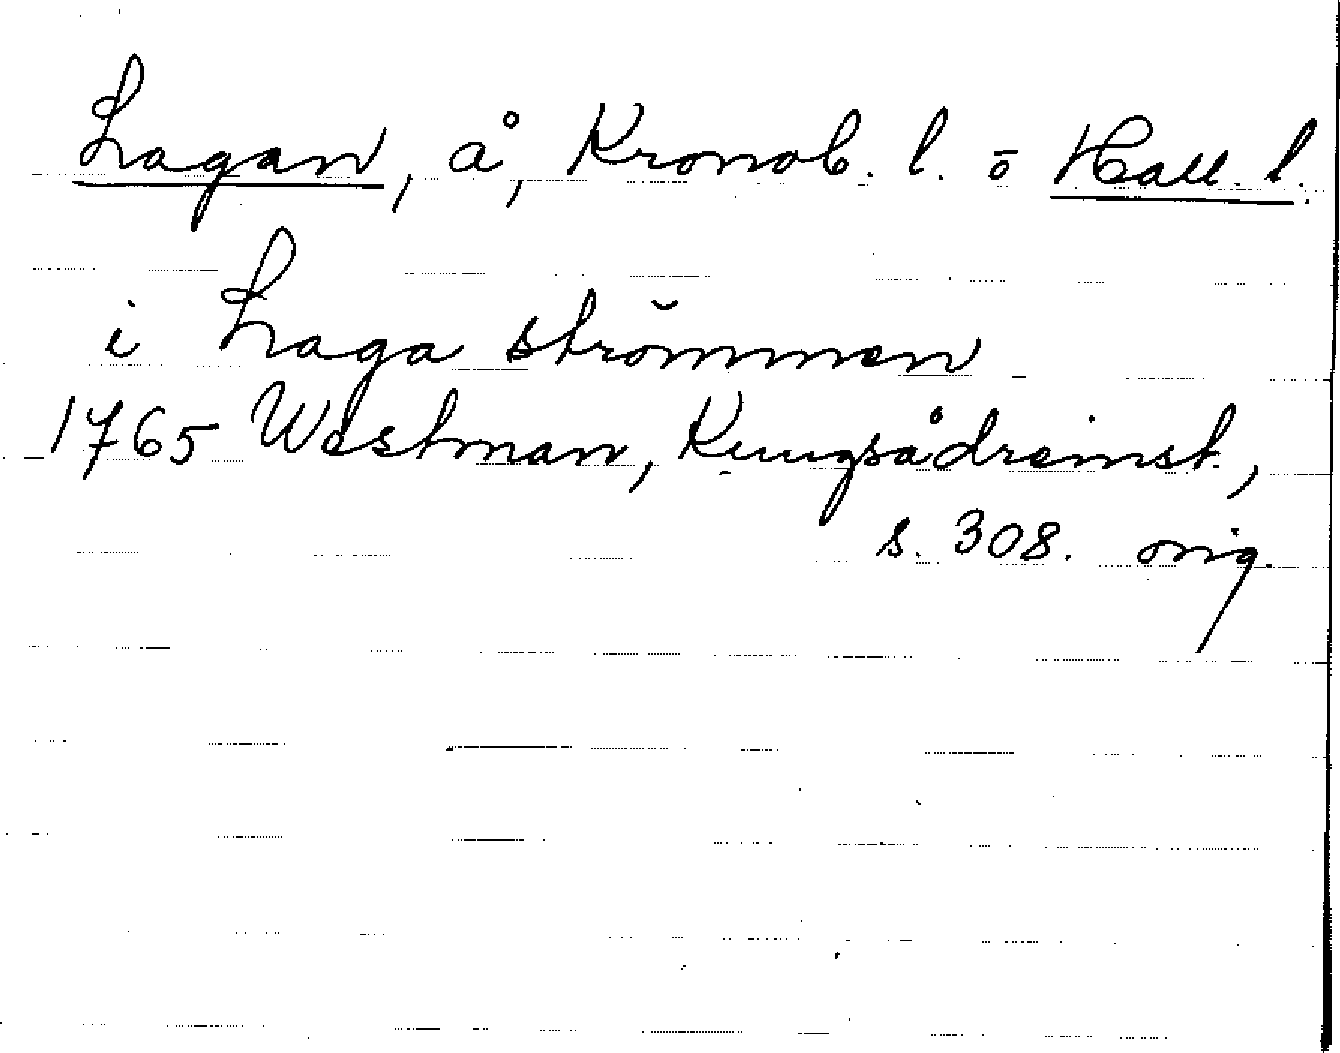 Lagan, å, Kronob. l. o Hall. l.
i Laga strömmen
1765 Westman, Kungsådreinst.,
s. 308. orig.